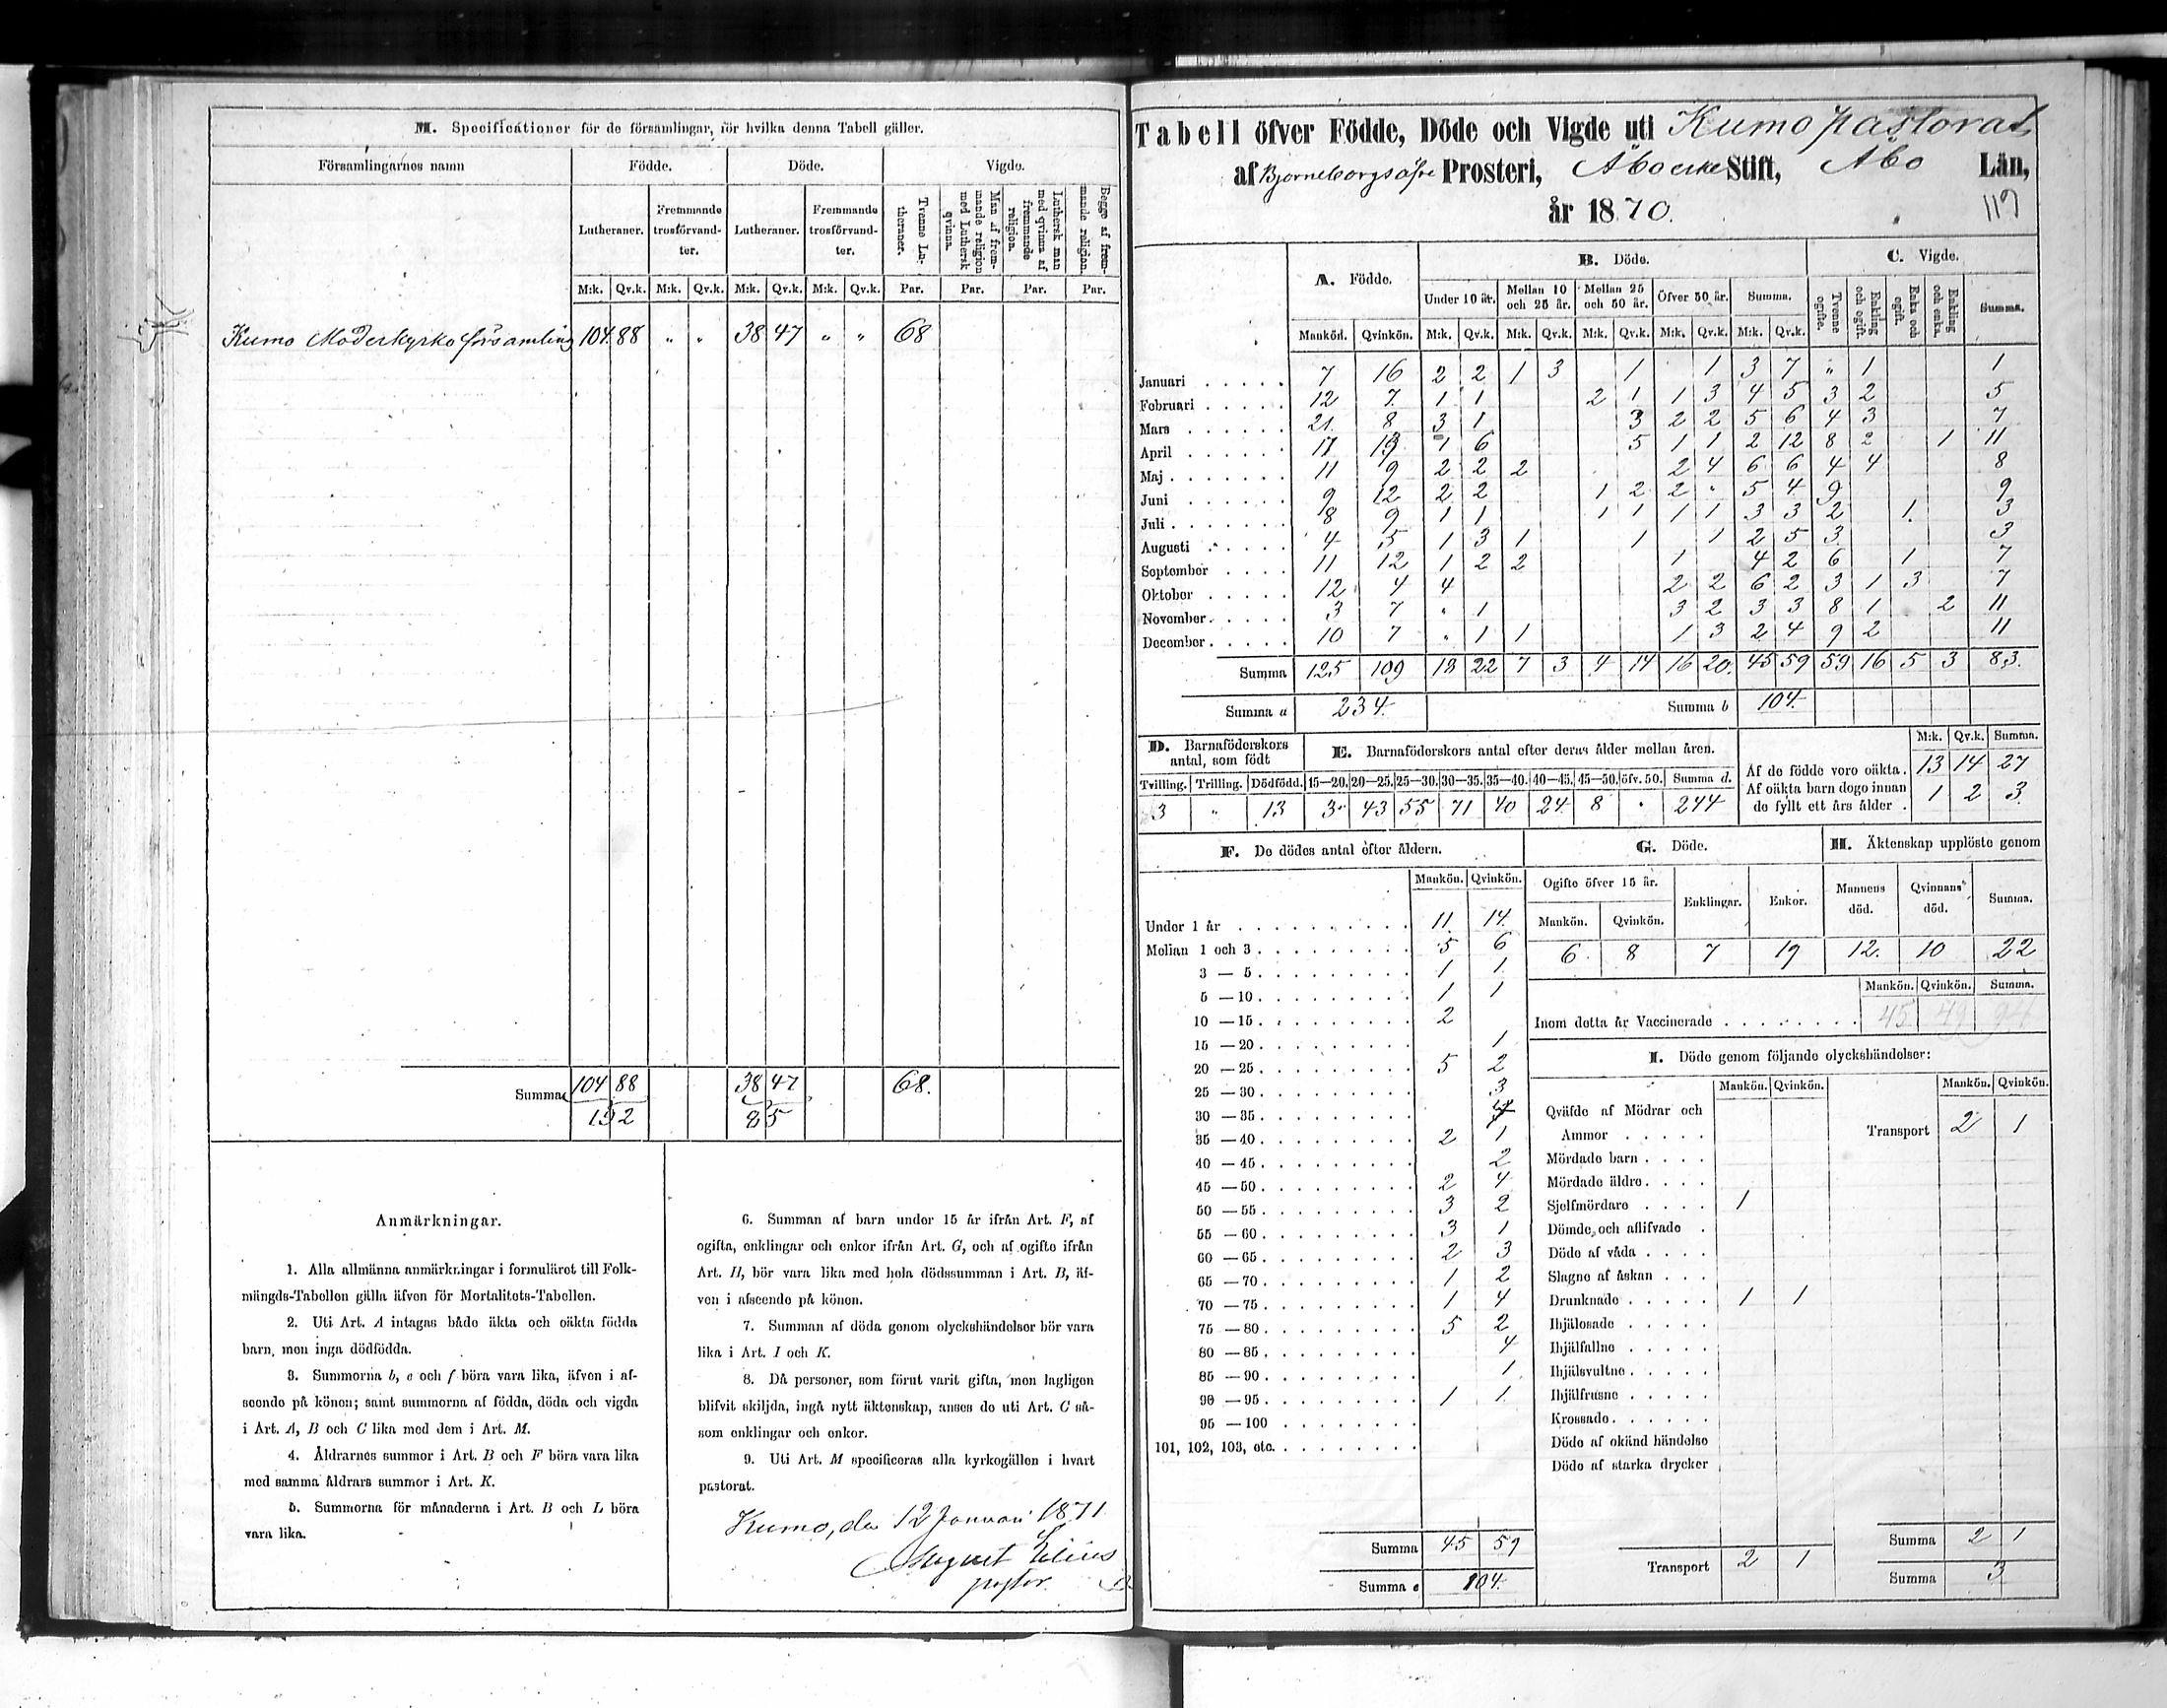 M. Specificationer för de församlingar, för hvilka denna Tabell gäller.
Församlingarnes namn Födde. Döde. Vigde.
Lutheraner. Fremmande trosförvandter. Lutheraner. Fremmande trosförvandter. Tvenne Lutheraner. Man af fremmande religion med Luthersk qvinna. Luthersk man med qvinna af fremmande religion. Begge af fremmande religion.
M:k. Qv.k. M:k. Qv.k. M:k. Qv.k. M:k. Qv.k. Par. Par. Par. Par.
Kumo Moderkyrko församling 104 88 " " 38 47 " " 68
Summa 104 88 38 47 68.
192 85
Anmärkningar.
1. Alla allmänna anmärkningar i formuläret till Folk-
mängds-Tabellen gälla äfven för Mortalitets-Tabellen.
2. Uti Art. A intagas både äkta och oäkta födda
barn, men inga dödfödda.
3. Summorna b, e och f böra vara lika, äfven i af-
seende på könen; samt summorna af födda, döda och vigda
i Art. A, B och C lika med dem i Art. M.
4. Åldrarnes summor i Art. B och F böra vara lika
med samma åldrars summor i Art. K.
5. Summorna för månaderna i Art. B och L böra
vara lika.
6. Summan af barn under 15 år ifrån Art. F, af
ogifta, enklingar och enkor ifrån Art. G, och af ogifte ifrån
Art. H, bör vara lika med hela dödssumman i Art. B, äf-
ven i afseende på könen.
7. Summan af döda genom olyckshändelser bör vara
lika i Art. I och K.
8. Då personer, som förut varit gifta, men lagligen
blifvit skiljda, ingå nytt äktenskap, anses de uti Art. C så-
som enklingar och enkor.
9. Uti Art. M specificeras alla kyrkogällen i hvart
pastorat.
Kumo, den 12 Januari 1871
August
pastor.
Tabell öfver Födde, Döde och Vigde uti Kumo pastorat
af Björneborgs öfre Prosteri, Åbo erke Stift, Åbo Län,
år 1870. 119
A. Födde. B. Döde. C. Vigde.
Under 10 år. Mellan 10 och 25 år. Mellan 25 och 50 år. Öfver 50 år. Summa. Tvenne ogifte. Enkling och ogift. Enka och ogift. Enkling och enka. Summa.
Mankön. Qvinkön. M:k. Qv.k. M:k. Qv.k. M:k. Qv.k. M:k. Qv.k. M:k. Qv.k.
Januari 7 16 2 2 1 3 1 1 3 7 " 1 1
Februari 12 7 1 1 2 1 1 3 4 5 3 2 5
Mars 21 8 3 1 3 2 2 5 6 4 3 7
April 17 13 1 6 5 1 1 2 12 8 2 1 11
Maj 11 9 2 2 2 2 4 6 6 4 4 8
Juni 9 12 2 2 1 2 2 " 5 4 9 9
Juli 8 9 1 1 1 1 1 1 3 3 2 1 3
Augusti 4 5 1 3 1 1 1 2 5 3 3
September 11 12 1 2 2 1 4 2 6 1 7
Oktober 12 4 4 2 2 6 2 3 1 3 7
November 3 7 " 1 3 2 3 3 8 1 2 11
December 10 7 " 1 1 1 3 2 4 9 2 11
Summa 125 109 18 22 7 3 4 14 16 20 45 59 59 16 5 3 83.
Summa a 234. Summa b 104.
D. Barnaföderskors antal, som född E. Barnaföderskors antal efter deras ålder mellan åren. M:k. Qv.k. Summa.
Tvilling. Trilling. Dödfödd. 15—20. 20—25. 25—30. 30—35. 35—40. 40—45. 45—50. öfv. 50. Summa d.
3 " 13 3 43 55 71 40 24 8 " 244
Af de födde voro oäkta. 13 14 27
Af oäkta barn dogo innan de fyllt ett års ålder. 1 2 3
F. De dödes antal efter åldern.
Mankön. Qvinkön.
Under 1 år 11 14
Mellan 1 och 3 5 6
3 — 5 1 1
5 — 10 1 1
10 — 15 2
15 — 20 1
20 — 25 5 2
25 — 30 3
30 — 35 4
35 — 40 2 1
40 — 45 2
45 — 50 2 4
50 — 55 3 2
55 — 60 3 1
60 — 65 2 3
65 — 70 1 2
70 — 75 1 4
75 — 80 5 2
80 — 85 4
85 — 90 1
90 — 95 1 1
95 — 100
101, 102, 103, etc.
Summa 45 59
Summa e 104.
G. Döde. H. Äktenskap upplöste genom
Ogifte öfver 15 år. Enklingar. Enkor. Mannens död. Qvinnans död. Summa.
Mankön. Qvinkön.
6 8 7 19 12. 10 22
Mankön. Qvinkön. Summa.
Inom detta år Vaccinerade 45
I. Döde genom följande olyckshändelser:
Mankön. Qvinkön. Mankön. Qvinkön.
Qväfde af Mödrar och
Ammor
Transport 2 1
Mördade barn
Mördade äldre
Sjelfmördare 1
Dömde och aflifvade
Döde af våda
Slagne af åskan
Drunknade 1 1
Ihjälosade
Ihjälfallne
Ihjälsvultne
Ihjälfrusne
Krossade
Döde af okänd händelse
Döde af starka drycker
Transport 2 1
Summa 2 1
Summa 3